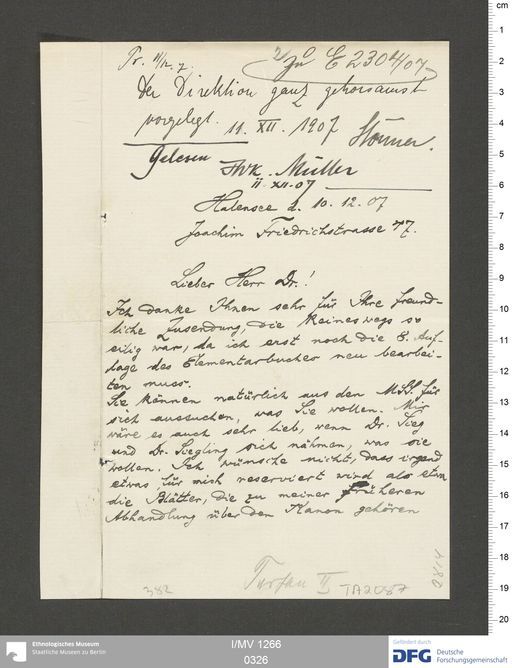 Pr. 11/12. 7.
Zu E 2304/07
Der Direktion ganz gehorsamst
vorgelegt. 11. XII. 1907 Stönner.
Gelesen FWK. Müller
11-XII-07
Halensee d. 10. 12. 07
Joachim Friedrichstrasse 47.
Lieber Herr Dr.!
Ich danke Ihnen sehr für Ihre freund-
liche Zusendung, die keineswegs so
eilig war, da ich erst noch die 8. Auf-
lage des Elementarbuches neu bearbei-
ten muss.
Sie können natürlich aus den MSS. für
sich aussuchen, was Sie wollen. Mir
wäre es auch sehr lieb, wenn Dr. Sieg
und Dr. Siegling sich nähmen, was sie
wollen. Ich wünsche nicht, dass irgend
etwas für mich reserviert wird als etwa
die Blätter, die zu meiner früheren
Abhandlung über den Kanon gehören
Turfan II
TA2087
382
0814
Ethnologisches Museum
Staatliche Museen zu Berlin
I/MV 1266
0326
Gefördert durch
DFG Deutsche
Forschungsgemeinschaft
cm
1
2
3
4
5
6
7
8
9
10
11
12
13
14
15
16
17
18
19
20